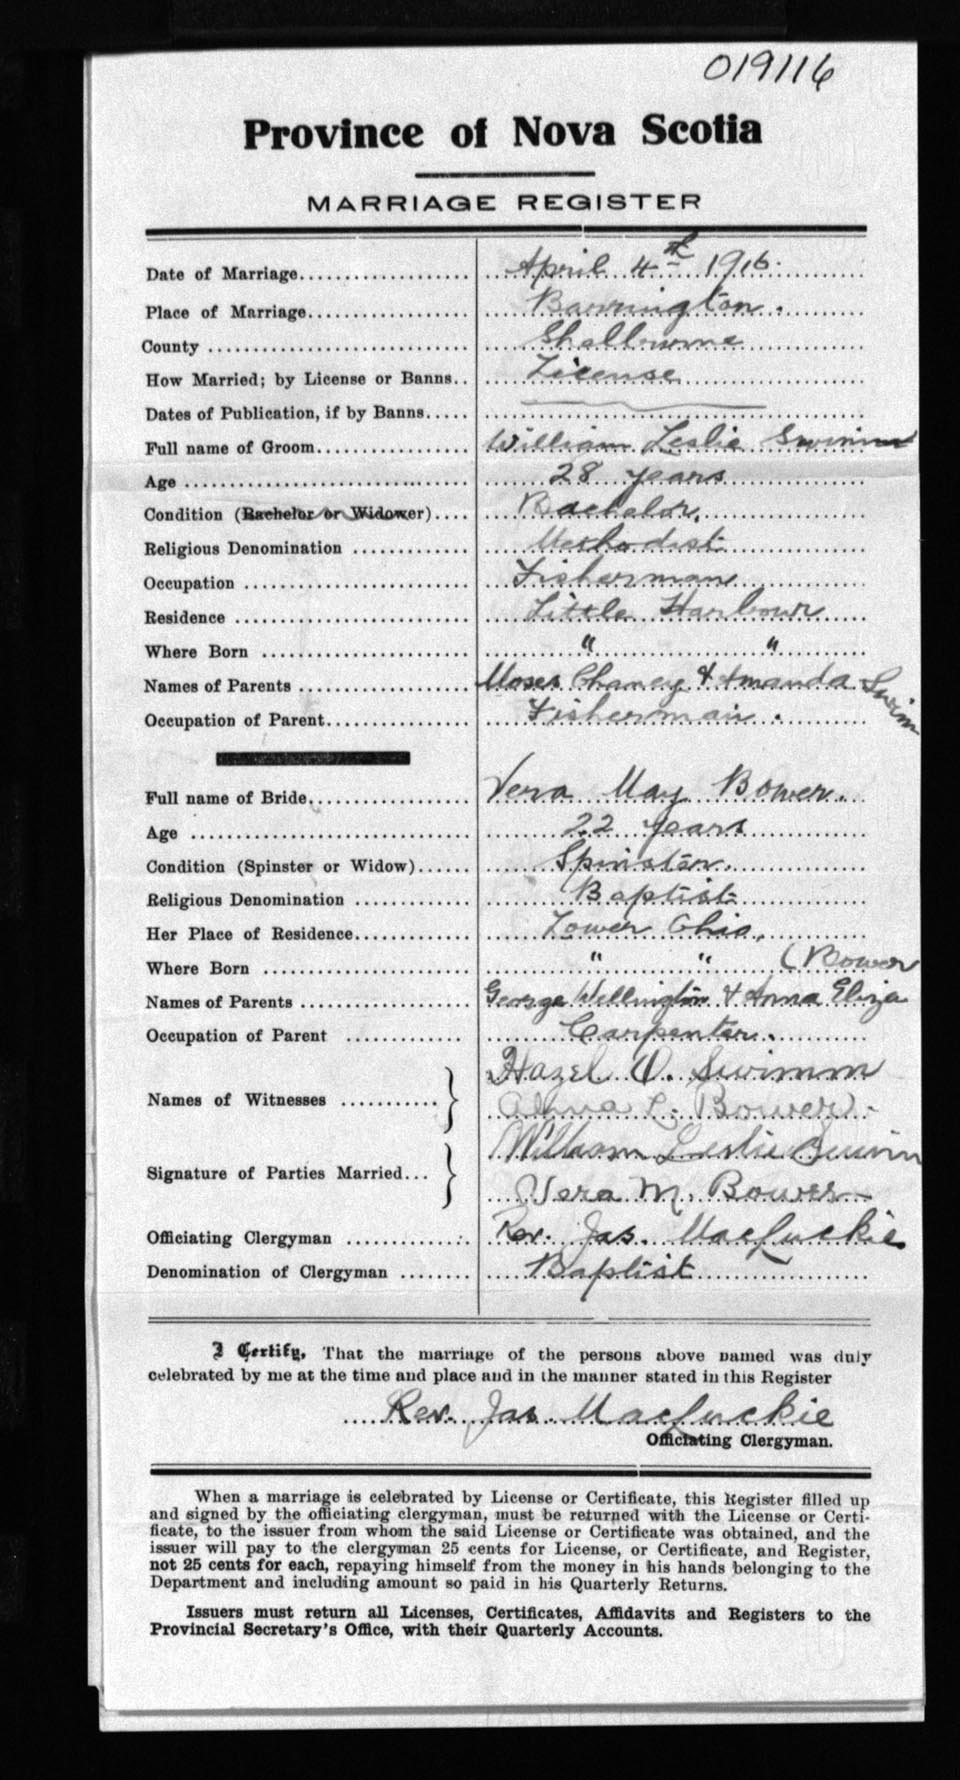 019116
Province of Nova Scotia
MARRIAGE REGISTER
Date of Marriage.................... April 4th 1916.
Place of Marriage................. Barrington.
County .............................. Shelburne
How Married; by License or Banns.. License
Dates of Publication, if by Banns.....
Full name of Groom.................. William Leslie Swimm
Age ................................. 28 years
Condition (Bachelor or Widower).... Bachelor.
Religious Denomination ............. Methodist
Occupation .......................... Fisherman
Residence ........................... Little Harbour
Where Born ........................ " "
Names of Parents ................... Moses Chaney & Amanda Swim
Occupation of Parent................ Fisherman.
Full name of Bride................... Vera May Bower.
Age ................................. 22 years
Condition (Spinster or Widow)...... Spinster.
Religious Denomination ............ Baptist
Her Place of Residence............. Lower Ohio.
Where Born ........................ " " (Bower
Names of Parents .................. George Wellington & Anna Eliza
Occupation of Parent ............. Carpenter.
Names of Witnesses ........... } Hazel O. Swimm
Anna L. Bower.
Signature of Parties Married... } William Leslie Swim
Vera M. Bower
Officiating Clergyman ............. Rev. Jas. MacLuckie
Denomination of Clergyman ........ Baptist
I Certify, That the marriage of the persons above named was duly
celebrated by me at the time and place and in the manner stated in this Register
.....Rev. Jas. MacLuckie
Officiating Clergyman.
When a marriage is celebrated by License or Certificate, this Register filled up
and signed by the officiating clergyman, must be returned with the License or Certi-
ficate, to the issuer from whom the said License or Certificate was obtained, and the
issuer will pay to the clergyman 25 cents for License, or Certificate, and Register,
not 25 cents for each, repaying himself from the money in his hands belonging to the
Department and including amount so paid in his Quarterly Returns.
Issuers must return all Licenses, Certificates, Affidavits and Registers to the
Provincial Secretary's Office, with their Quarterly Accounts.